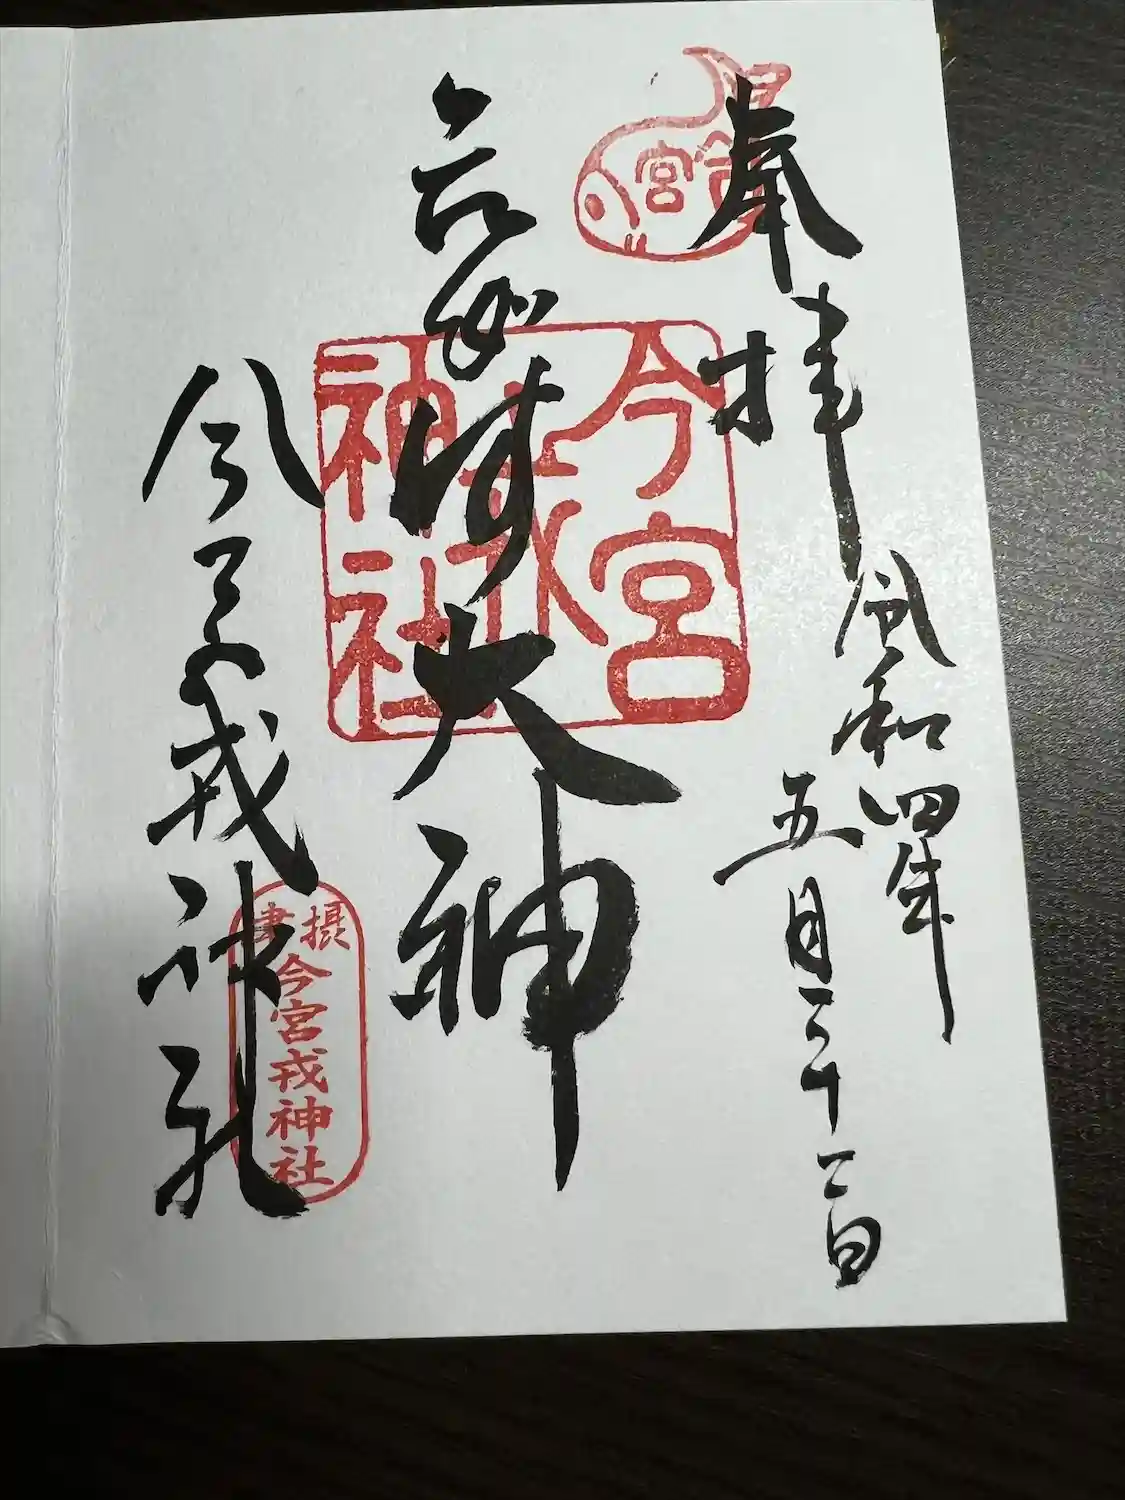 奉拝
令和四年
五月二十二日
大神
今宮戎神社
今宮
今宮戎神社
摂津
今宮戎神社